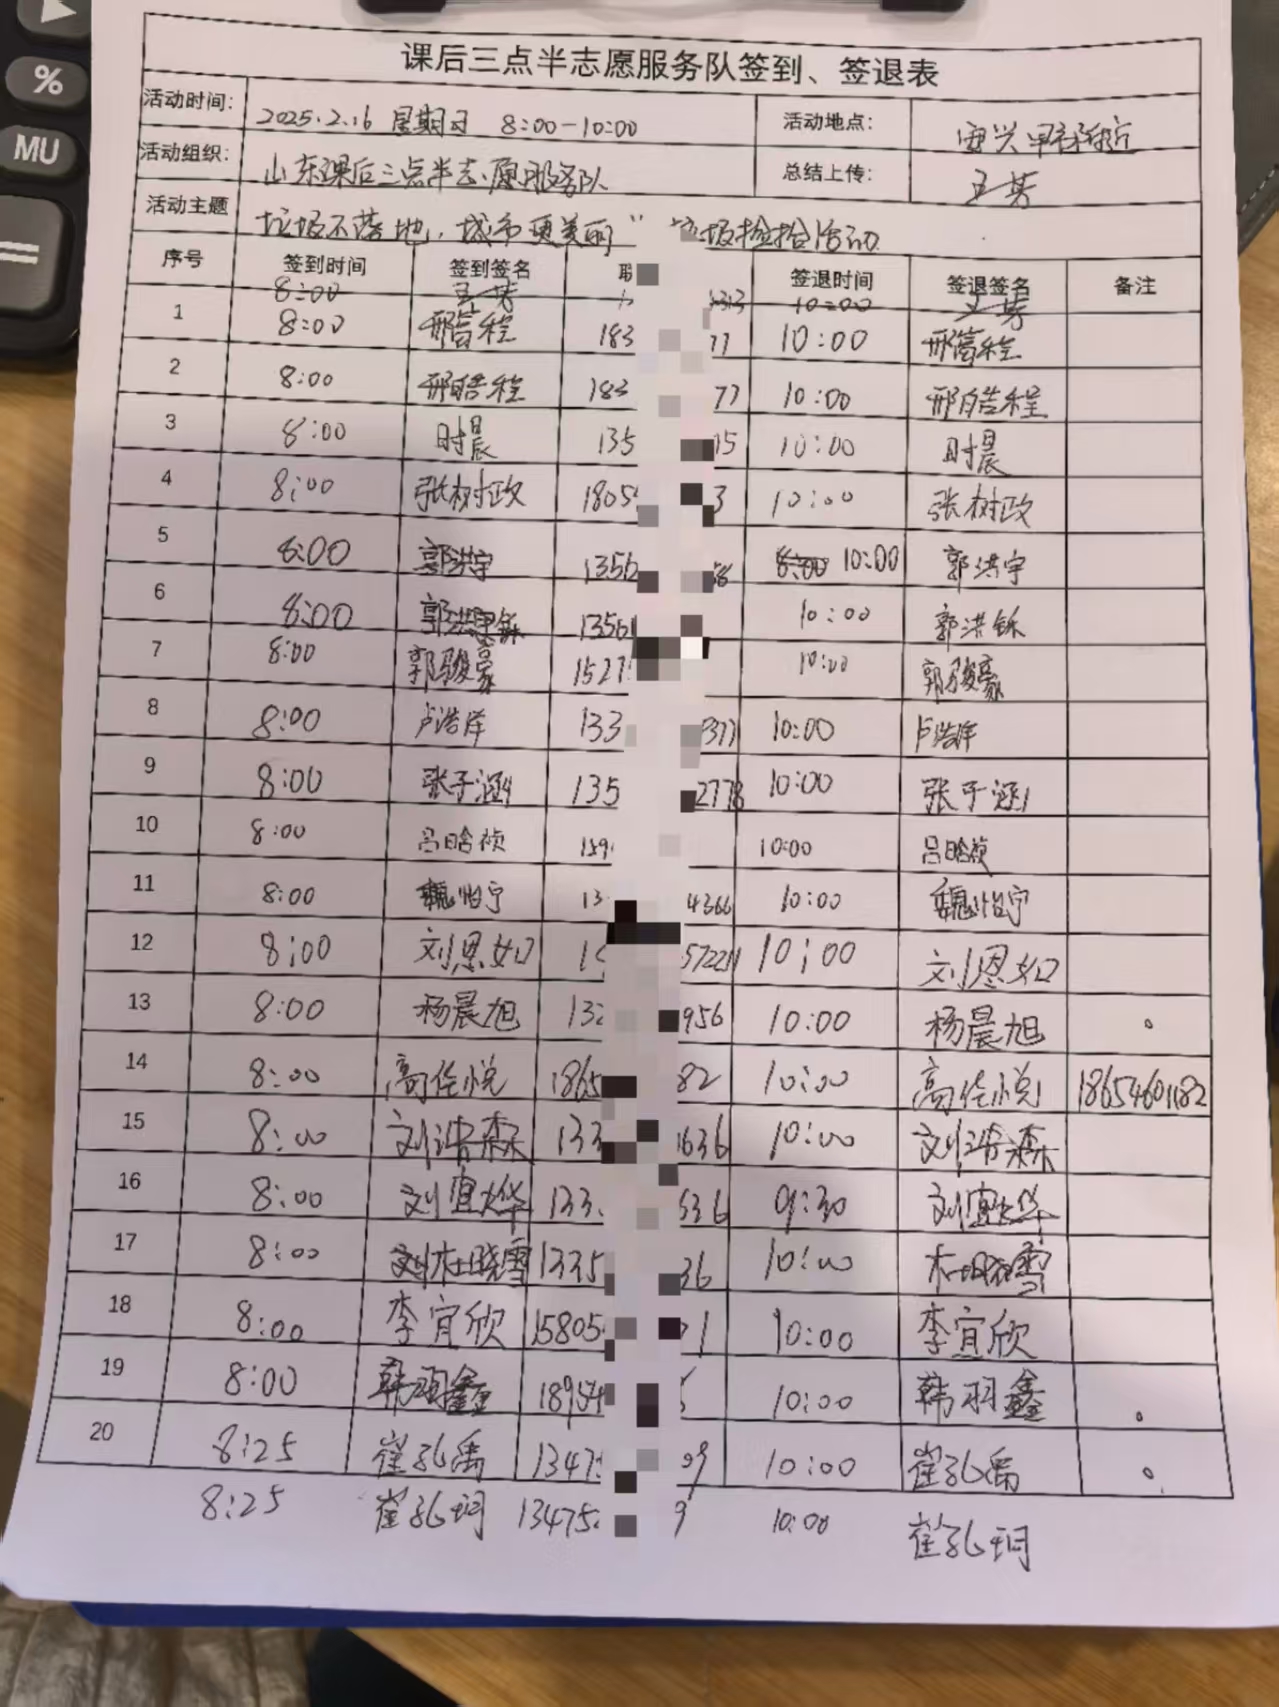 %
MU
课后三点半志愿服务队签到、签退表
活动时间： 2025.2.16 星期日 8:00-10:00 活动地点：
活动组织： 山东课后三点半志愿服务队 总结上传： 王芳
活动主题 垃圾不落地，城市更美丽" 垃圾捡拾活动
序号 签到时间 签到签名 签退时间 签退签名 备注
8:00 王芳 313 10:00 王芳
1 8:00 183 77 10:00
2 8:00 邢皓程 183 77 10:00 邢皓程
3 8:00 时晨 135 15 10:00 时晨
4 8:00 张树政 1805 3 10:00 张树政
5 8:00 郭洪宇 1356 58 8:00 10:00 郭洪宇
6 8:00 郭洪 1356 10:00 郭洪铄
7 8:00 郭骏豪 1527 10:00 郭骏豪
8 8:00 卢浩洋 133 377 10:00 卢浩洋
9 8:00 张子涵 135 2778 10:00 张子涵
10 8:00 159 10:00
11 8:00 魏怡宁 13 4366 10:00 魏怡宁
12 8:00 刘恩如 1 57221 10:00 刘恩如
13 8:00 杨晨旭 132 956 10:00 杨晨旭
14 8:00 高佺悦 1865 82 10:00 高佺悦 18654601182
15 8:00 刘浩森 133 1636 10:00 刘浩森
16 8:00 刘宜烨 133 636 9:30 刘宜烨
17 8:00 杜晓雪 1335 36 10:00 杜晓雪
18 8:00 李宜欣 15805 21 10:00 李宜欣
19 8:00 韩羽鑫 18954 10:00 韩羽鑫
20 8:25 崔孔禹 1347 09 10:00 崔孔禹
8:25 崔孔玥 13475 9 10:00 崔孔玥